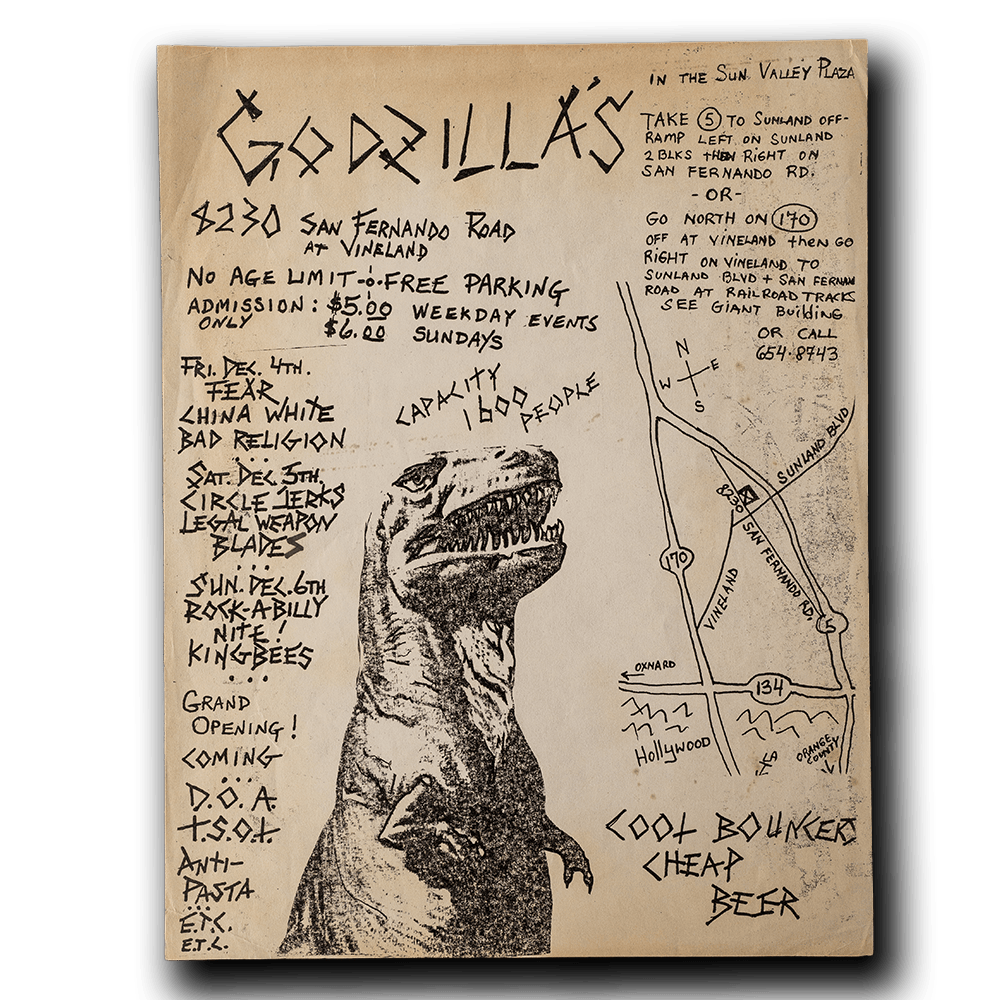 GODZILLA'S
8230 SAN FERNANDO ROAD
AT VINELAND
NO AGE LIMIT FREE PARKING
ADMISSION: $5.00 WEEKDAY EVENTS
ONLY $6.00 SUNDAYS
FRI. DEC. 4TH.
FEAR
CHINA WHITE
BAD RELIGION
SAT. DEC. 5TH.
CIRCLE JERKS
LEGAL WEAPON
BLADES
SUN. DEC. 6TH
ROCK-A-BILLY
NITE!
KINGBEES
GRAND
OPENING!
COMING
D.O.A.
T.S.O.L.
ANTI-
PASTA
E.T.C.
E.T.C.
CAPACITY
1600
PEOPLE
IN THE SUN VALLEY PLAZA
TAKE 5 TO SUNLAND OFF-
RAMP LEFT ON SUNLAND
2 BLKS THEN RIGHT ON
SAN FERNANDO RD.
-OR-
GO NORTH ON 170
OFF AT VINELAND then GO
RIGHT ON VINELAND TO
SUNLAND BLVD + SAN FERNAN
ROAD AT RAILROAD TRACKS
SEE GIANT BuildiNG
OR CALL
654-8743
N
W E
S
SUNLAND BLVD
8230
SAN FERNANDO RD.
170
VINELAND
5
OXNARD
134
HollywOOD
LA
ORANGE
COUNTY
COOL BOUNCERS
CHEAP
BEER